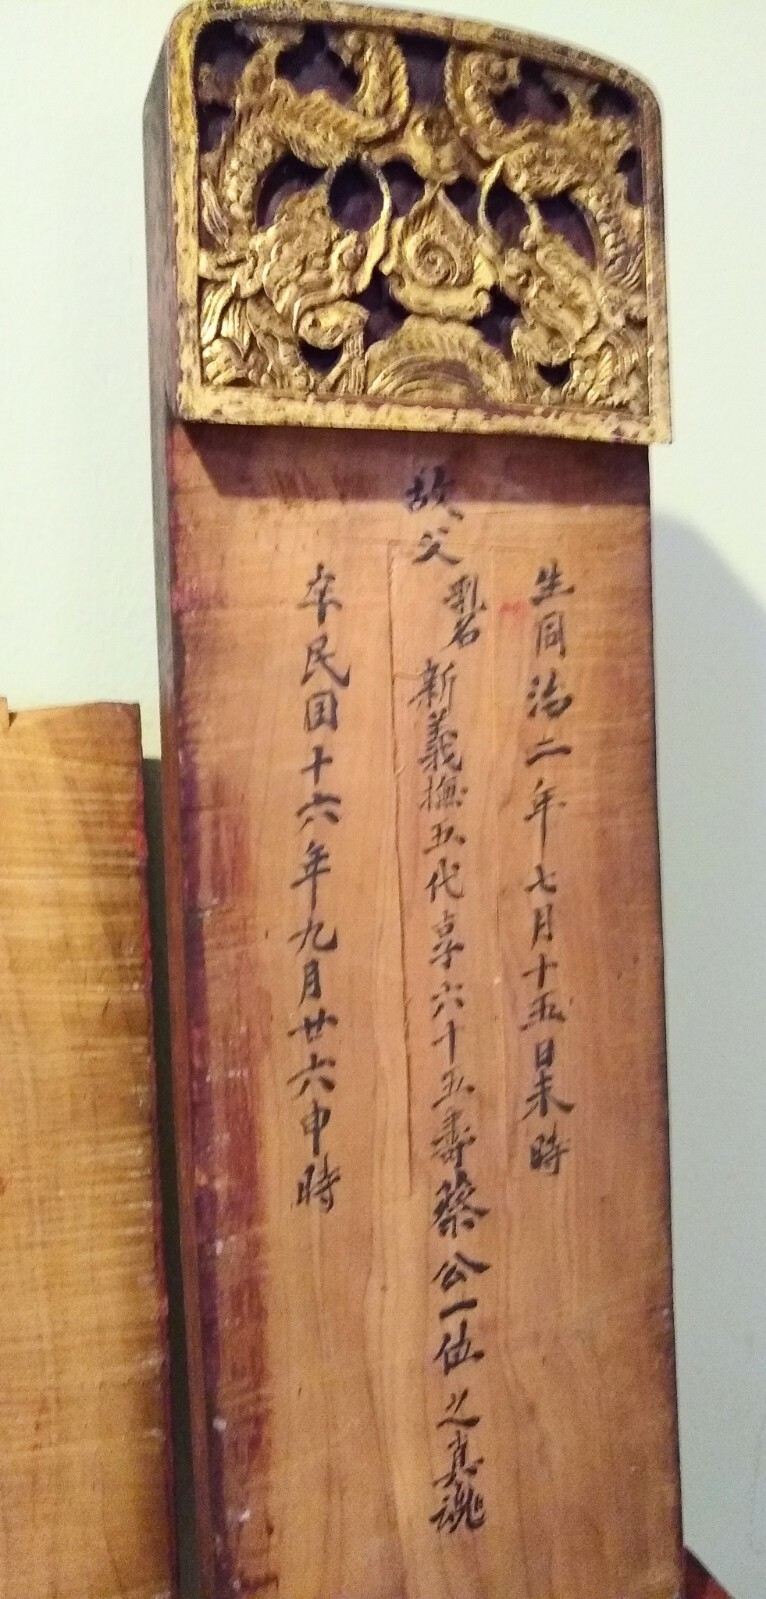 生同治二年七月十五日未時
故父乳名新義撫五代享六十五壽蔡公一位之真魂
卒民国十六年九月廿六申時